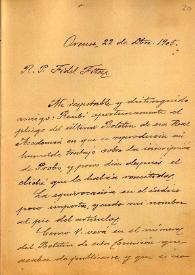 Orense, 22 de Dbre. 1905.
R. P. Fidel Fita
Mi respetable y distinguido
amigo: Recibí oportunamente el
pliego del último Boletín de esa Real
Academia en que se reproducía mi
humilde trabajo sobre la inscripción
de Probo, y pocos días después el
cliché que le había remitido.
La equivocación en el índice
poco importa, yendo mi nombre
al pie del artículo.
Como V. verá en el número
del Boletín de esta Comisión que
acaba de publicarse, y que si no